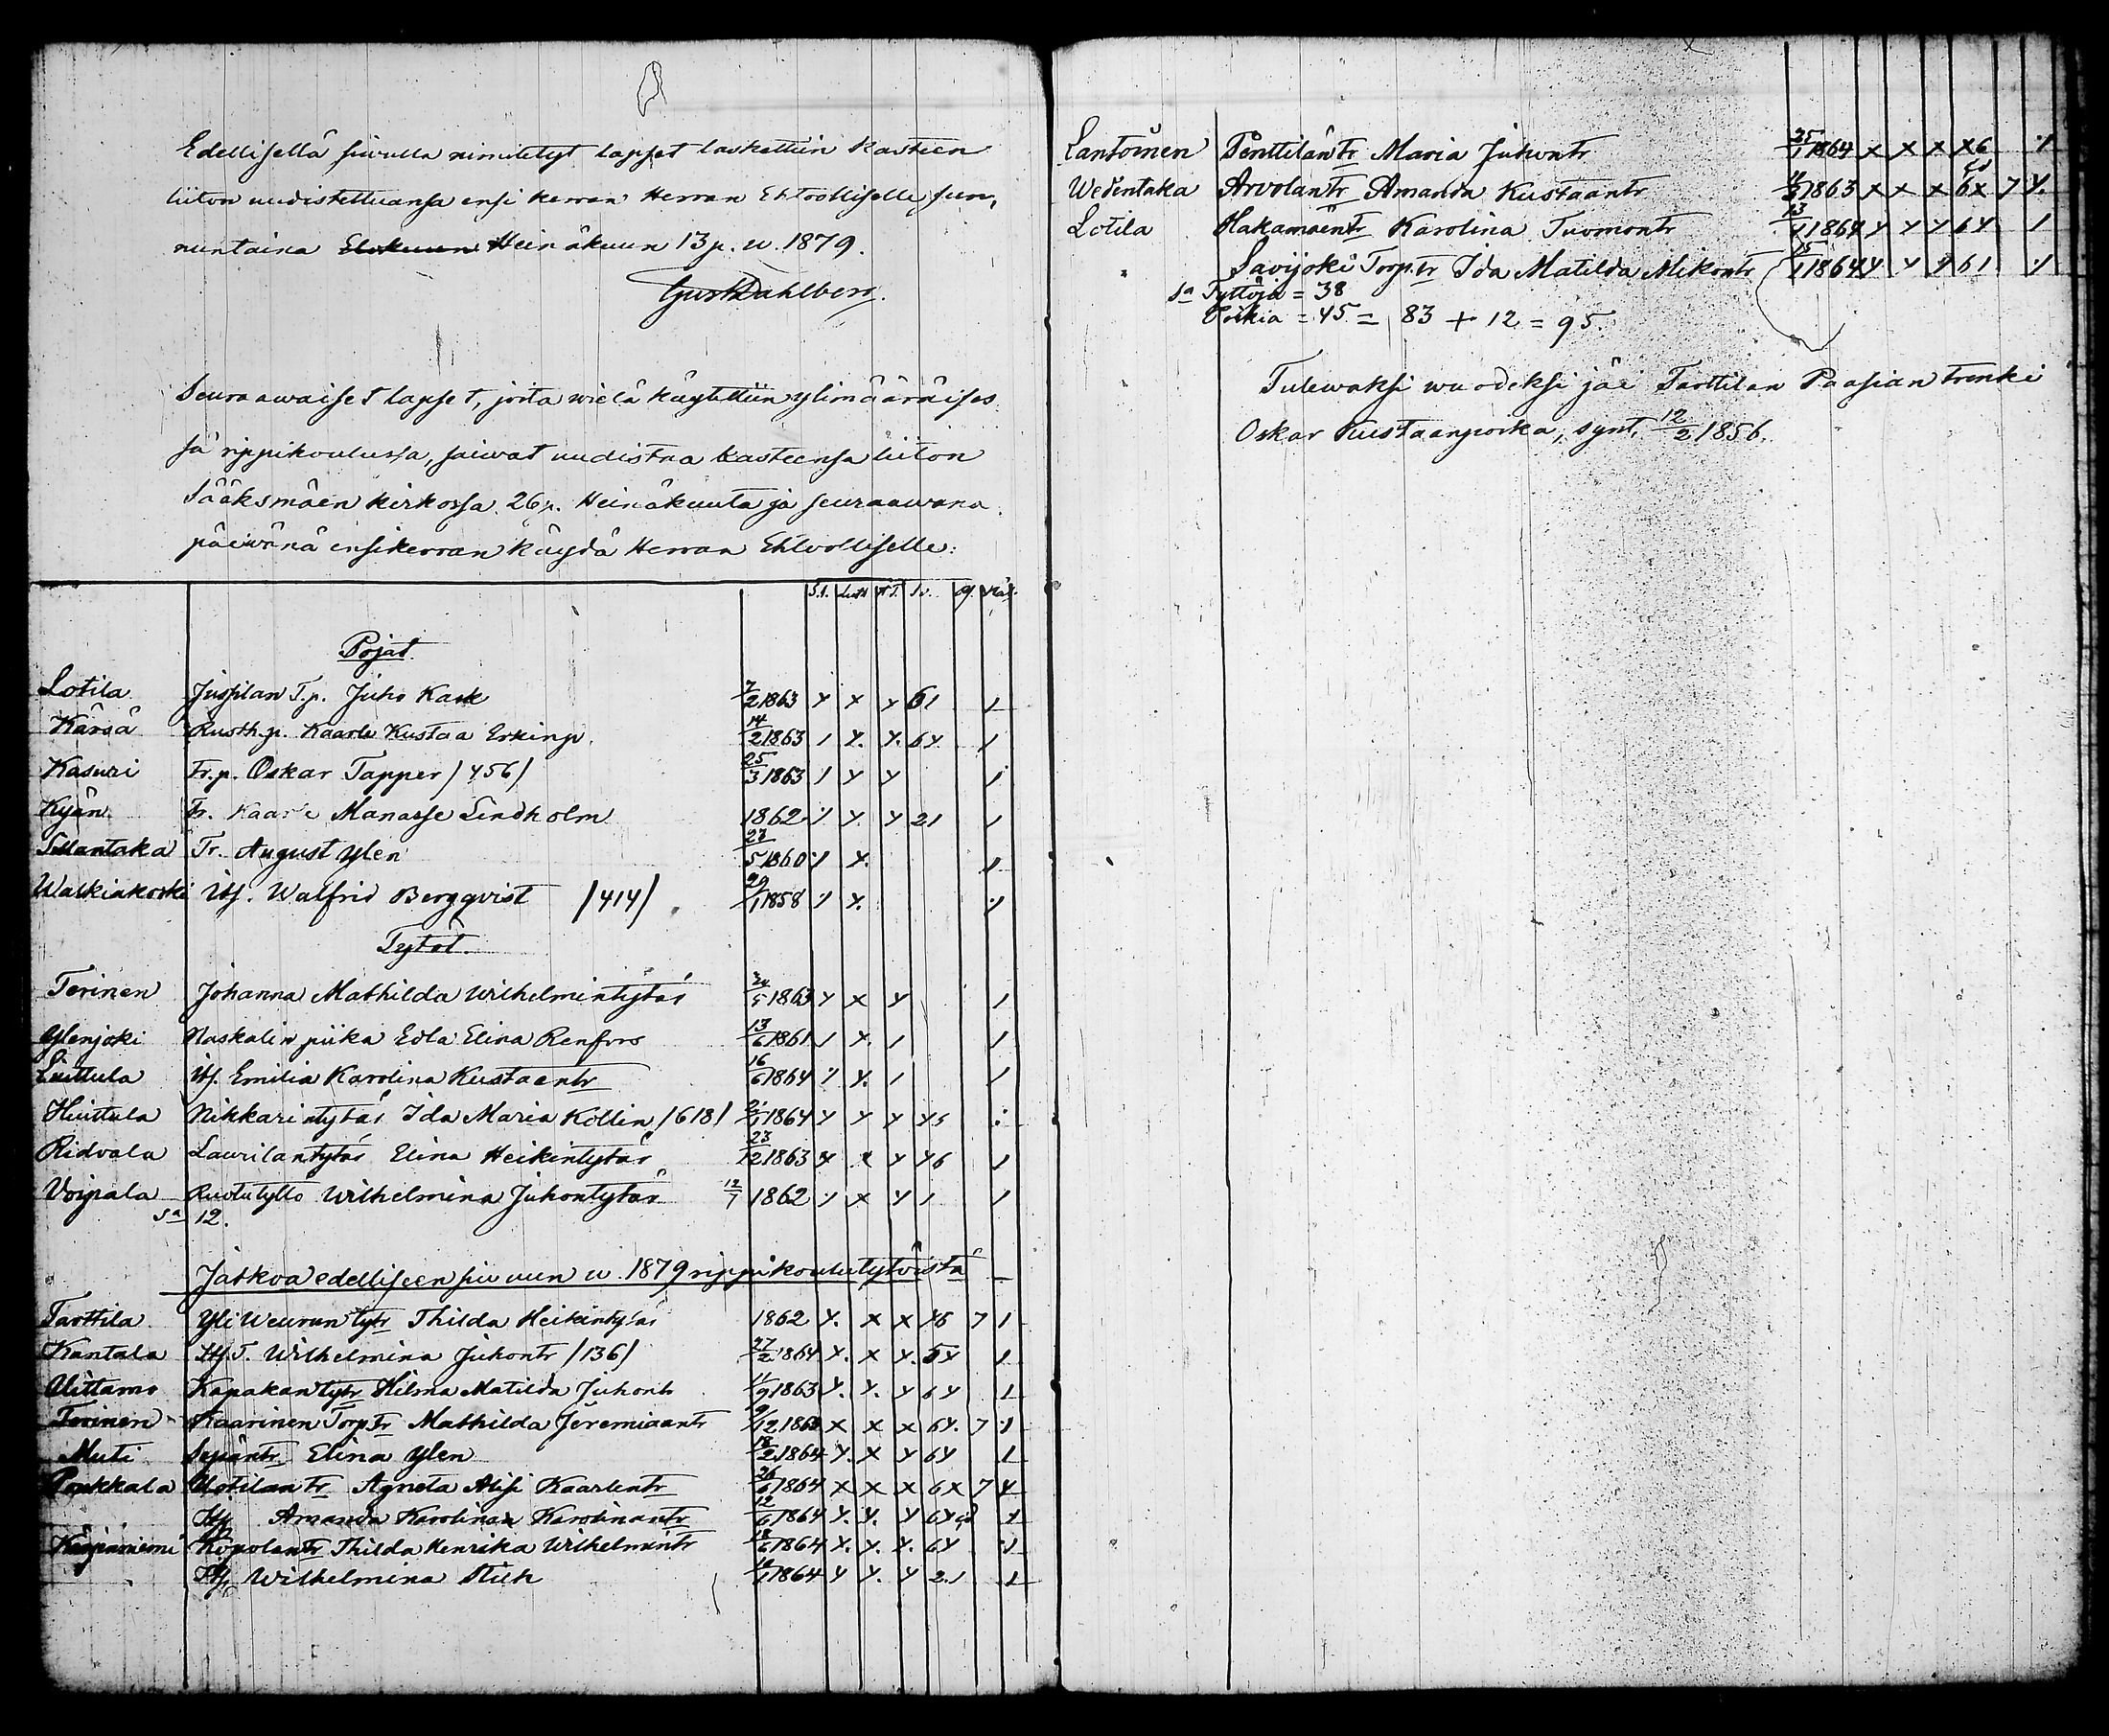 Edellisellä siwulla nimitetyt lapset laskettiin kasteen
liiton uudistettuansa ensi kerran Herran Ehtoolliselle sun,
nuntaina Elokuun Heinäkuun 13 p. w. 1879.
Gust Dahlberg.
Seuraawaiset lapset, joita wielä käytettiin ylimääräises
sä rippikoulussa, saiwat uudistaa kasteensa liiton
Sääksmäen kirkossa 26 p. Heinäkuuta ja seuraawana
päiwänä ensikerran käydä Herran Ehtoolliselle:
S.l. Luth N.T. Sv.
Pojat.
Lotila Jussilan T.p. Juho Kask 7/2 1863 y x y 61 /
Kärsä Rusth.p. Kaarle Kustaa Erkinp. 14/2 1863 / y. y. 6y /
Kasuri Tr.p. Oskar Tapper /456/ 25/3 1863 / y y /
Kyän Tr. Kaarle Manasse Lindholm 1862 y y. y 21 /
Sillantaka Tr. August Ylen 23/5 1860 y y. /
Walkiakoski Itj. Walfrid Bergqvist /414/ 29/1 1858 y y. y
Tytöt.
Terinen Johanna Mathilda Wilhelmintytär 24/5 1863 y x y /
Ylenjoki Naskalin piika Edla Elina Renfors 13/6 1861 / x. / /
Liuttula Itj. Emilia Karolina Kustaantr 16/6 1864 y y. / /
Huittula Nikkarintytär Ida Maria Kollin /618/ 1864 y y y y5
Ridvala Laurilantytär Elina Heikintytär 23/12 1863 y x y y6 /
Voipala Ruotutyttö Wilhelmina Juhontytär 12/7 1862 y x y / /
Sa 12.
Jatkoa edelliseen siwuun w. 1879 rippikoulutytöistä
Tarttila Yli Weurun tytr Thilda Heikintytär 1862 y. x x y6 7 /
Kantala Itj. T. Wilhelmina Juhontr /136/ 27/2 1864 y. x y. 5y /
Uittamo Kapakan tytr Hilma Matilda Juhontr 11/9 1863 y. y. y 6y /
Terinen Kaarinen Torp.tr Mathilda Jeremiaantr 9/12 1863 x x x 6y. 7 y
Muti Sepäntr. Elina Ylen 18/2 1864 y. x y 6y /
Pakkala Uotilan tr Agneta Alisi Kaarlentr 26/6 1864 x x x 6x 7 y
Itj Amanda Karolina Karolinantr 12/6 1864 y. y. y 6y y
Käpinniemi Ropolantr Thilda Henrika Wilhelmintr 18/6 1864 y. y. y. 6y y
Itj. Wilhelmina Stick 1864 y y. y 21 /
Lantoinen Penttiläntr Maria Juhontr 25/1 1864 x x x x6 y
Wedentaka Arvolantr Amanda Kustaantr 1863 x x x 6x 7 y.
Lotila Hakamäentr Karolina Tuomontr 13/1 1864 y y y 6y /
Savijoki Torp.tr Ida Matilda Mikontr 15/1 1864 y y y 61 y
Sa Tyttöjä = 38
Poikia = 45 = 83 + 12 = 95.
Tulewaksi wuodeksi jäi Tarttilan Paasian trenki
Oskar Kustaanpoika, synt. 12/2 1856.